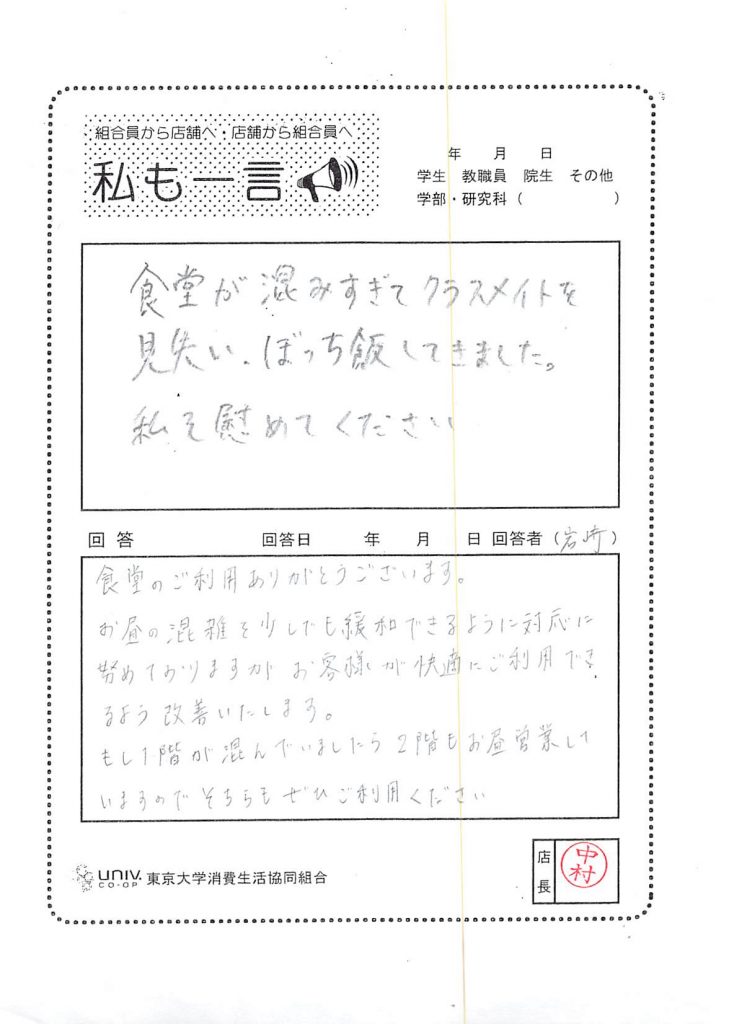 組合員から店舗へ・店舗から組合員へ
私も一言
年 月 日
学生 教職員 院生 その他
学部・研究科( )
食堂が混みすぎてクラスメイトを
見失い、ぼっち飯してきました。
私を慰めてください
回答 回答日 年 月 日 回答者(岩崎)
食堂のご利用ありがとうございます。
お昼の混雑を少しでも緩和できるように対応に
努めておりますが お客様が快適にご利用でき
るよう改善いたします。
もし1階が混んでいましたら 2階もお昼営業して
いますので そちらも ぜひご利用ください
UNIV. CO-OP 東京大学消費生活協同組合
店長
中村